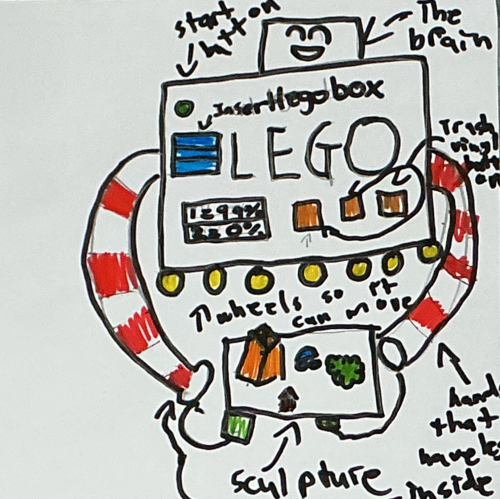 start
button
The
brain
Insert lego box
LEGO
Trash
1 299%
2 20%
wheels so it
can move
hands
that
have
inside
sculpture